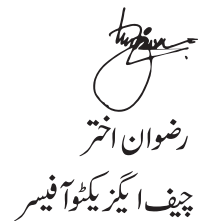 رضوان اختر
چیف ایگزیکٹو آفیسر